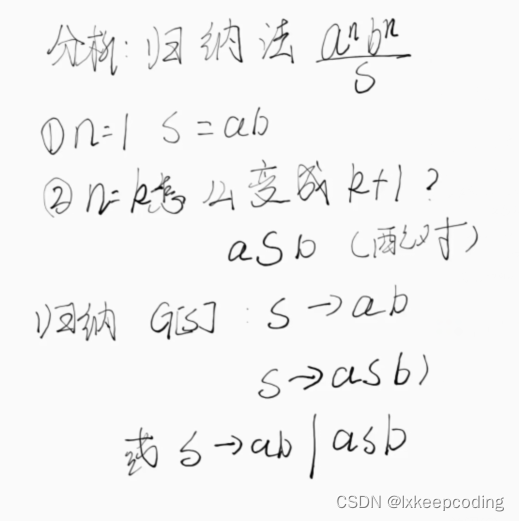 分析: 归纳法 aⁿbⁿ
S
① n=1 S=ab
② n=k怎么变成k+1?
aSb (配对)
归纳 G[S]: S→ab
S→aSb)
或 S→ab|aSb
CSDN @lxkeepcoding